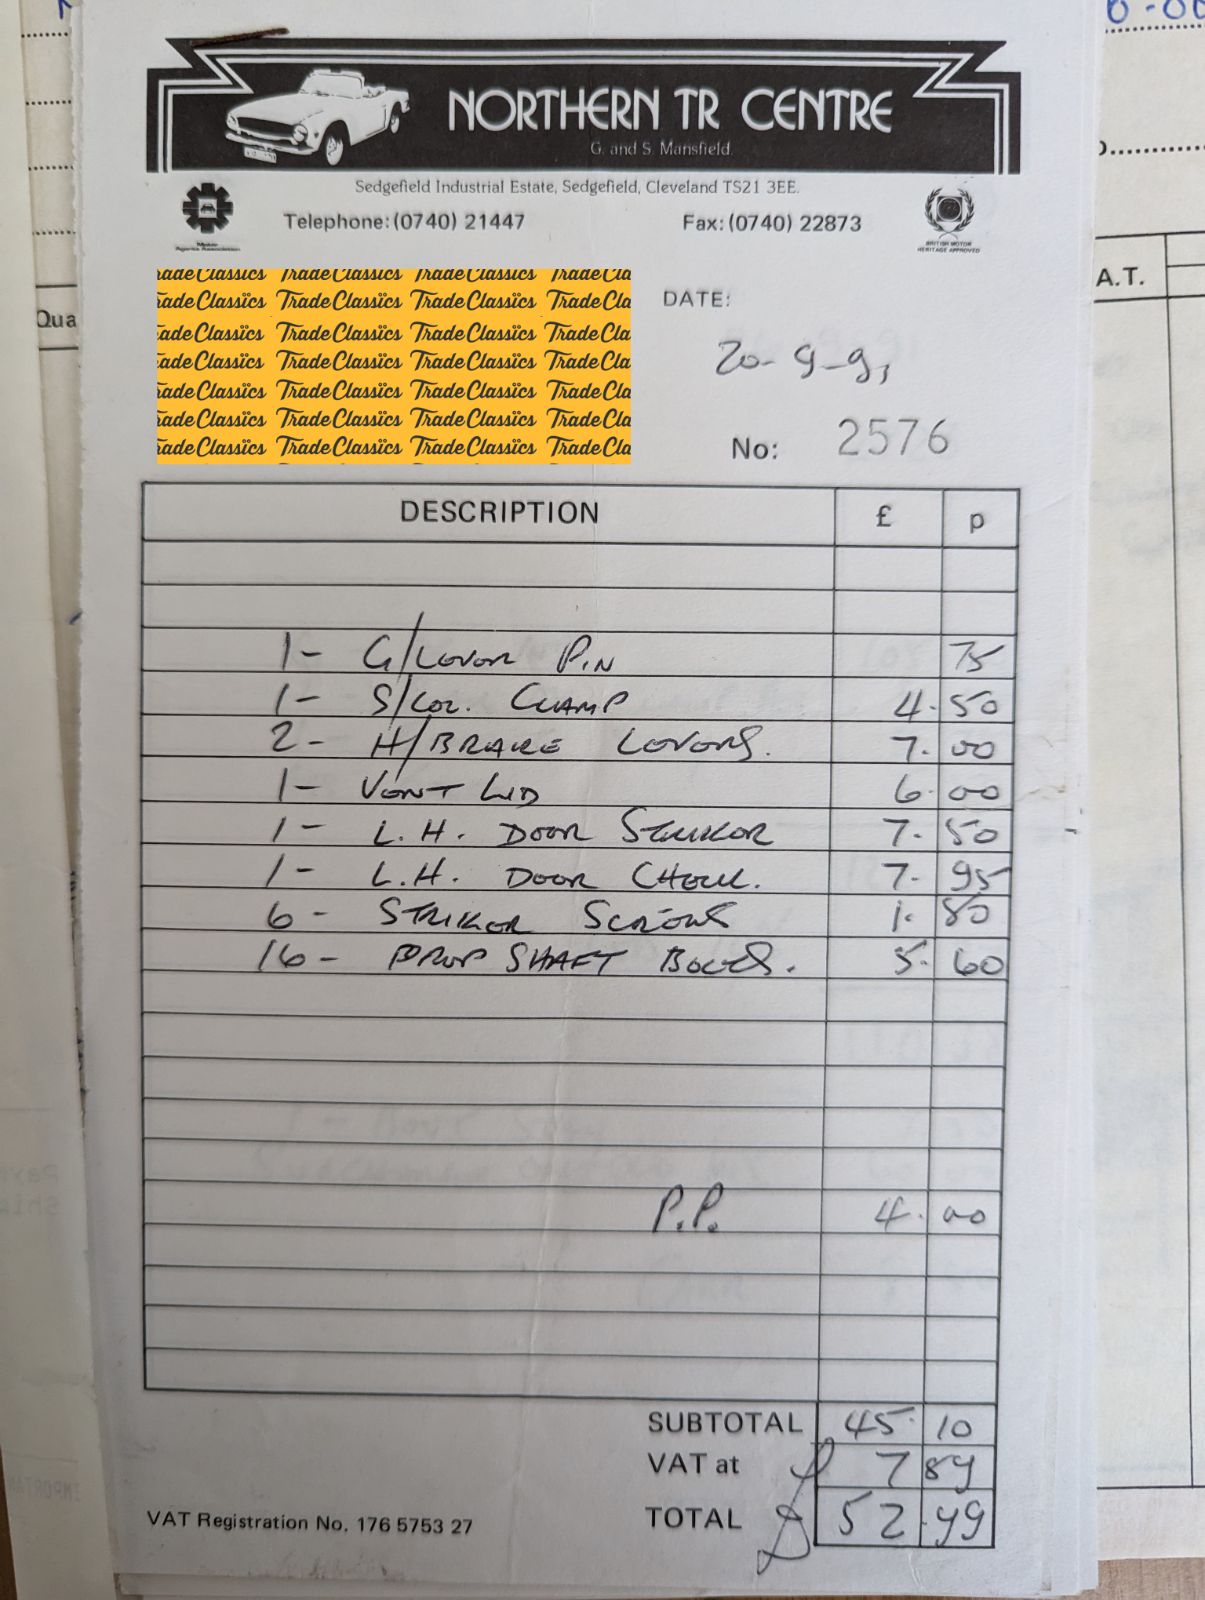 NORTHERN TR CENTRE
G. and S. Mansfield.
Sedgefield Industrial Estate, Sedgefield, Cleveland TS21 3EE.
Telephone: (0740) 21447 Fax: (0740) 22873
Motor Agents Association
BRITISH MOTOR HERITAGE APPROVED
Trade Classics Trade Classics Trade Classics
Trade Classics Trade Classics Trade Classics
Trade Classics Trade Classics Trade Classics
Trade Classics Trade Classics Trade Classics
Trade Classics Trade Classics Trade Classics
Trade Classics Trade Classics Trade Classics
Trade Classics Trade Classics Trade Classics
DATE:
20-9-91
No: 2576
DESCRIPTION £ p
1- G/LEVER PIN 75
1- S/COL. CLAMP 4.50
2- H/BRAKE LEVERS. 7.00
1- VENT LID 6.00
1- L.H. DOOR STRIKER 7.50
1- L.H. DOOR CHECK. 7.95
6- STRIKER SCREWS 1.80
16- PROP SHAFT BOLTS. 5.60
P.P. 4.00
SUBTOTAL 45.10
VAT at £ 7 89
TOTAL £ 52.99
VAT Registration No. 176 5753 27
Qua
A.T.